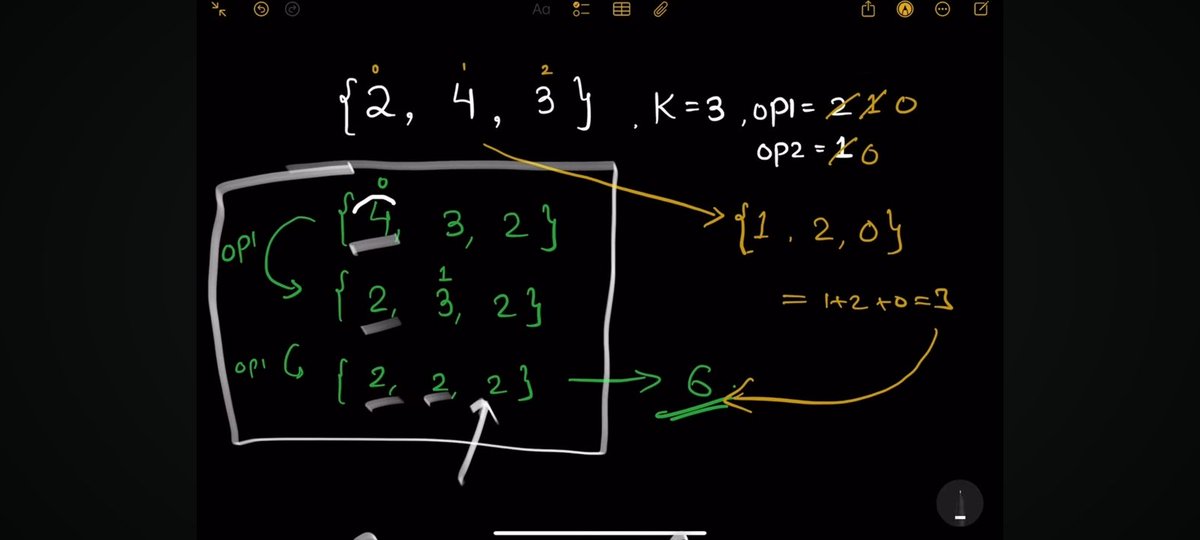 Aa
0 1 2
{2, 4, 3} , K=3, OP1= 2 1 0
OP2 = 1 0
0
{4, 3, 2}
{1, 2, 0}
OP1
1
{2, 3, 2}
= 1+2+0=3
OP1
{2, 2, 2} → 6